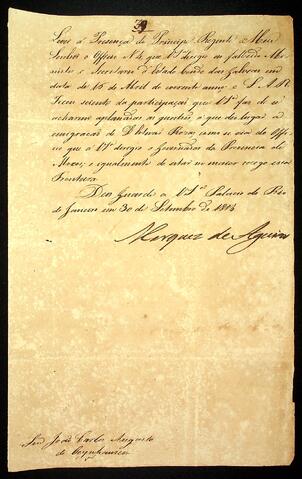 Levei á Presença do Principe Regente Meu
Senhor o Officio Nº 4, que VSª dirigio ao falecido Mi-
nistro e Secretario d'Estado Conde das Galveas em
data de 15 de Abril do corrente anno; e S. A. R.
ficou sciente da participação que VSª faz de se
acharem aplanadas as questões, a que deu lugar a
emigração de D. Rivas, como se via do Offi-
cio que a VSª dirigio o Governador da Provincia de
e igualmente de estar no maior socego essa
Fronteira.
Deos Guarde a VSª Palacio do Rio
de Janeiro em 30 de Setembro de 1814
Marquez de Aguiar
Snr. João Carlos Augusto
de Oeynhausen